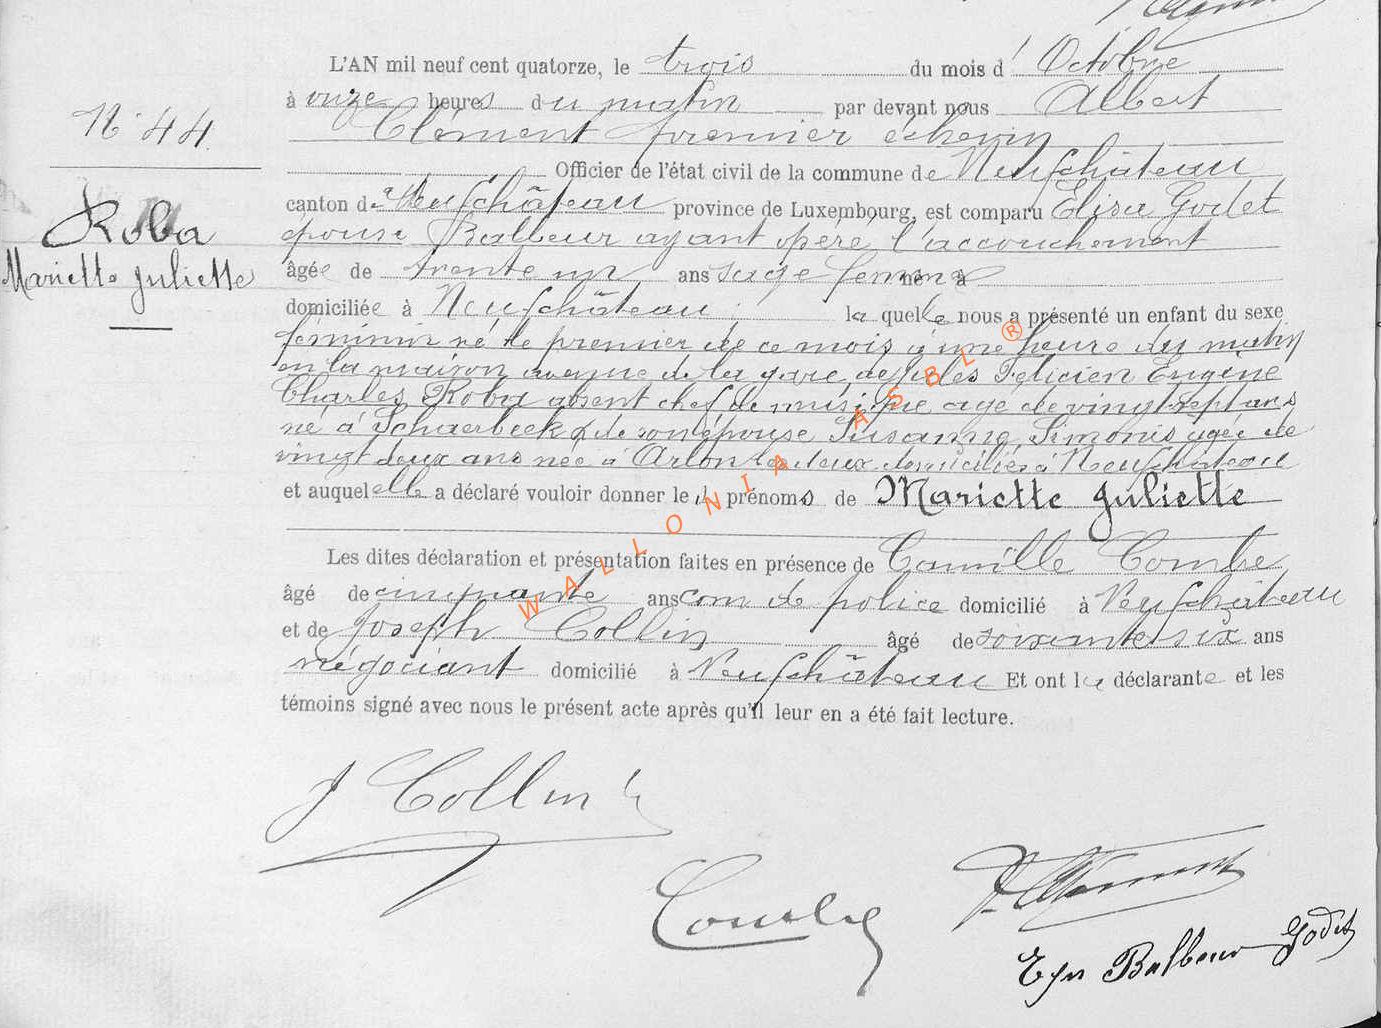 L'AN mil neuf cent quatorze, le trois du mois d' Octobre
à onze heures du matin par devant nous Albert
Clément premier échevin
Officier de l'état civil de la commune de Neufchâteau
canton de Neufchâteau province de Luxembourg, est comparu Elisa Godet
épouse Balbeur ayant opéré l'accouchement
âgée de trente un ans sage femme née à
domiciliée à Neufchâteau ; laquelle nous a présenté un enfant du sexe
féminin né le premier de ce mois à une heure du matin
en la maison avenue de la gare, de Jules Félicien Eugène
Charles Roba absent chef de musique agé de vingt sept ans
né à Schaerbeek & de son épouse Susanne Simonis agée de
vingt deux ans née à Arlon les deux domiciliés à Neufchâteau
et auquel elle a déclaré vouloir donner les prénoms de Mariette Juliette
Les dites déclaration et présentation faites en présence de Camille Combe
âgé de cinquante ans com de police domicilié à Neufchâteau
et de Joseph Collin âgé de soixante six ans
négociant domicilié à Neufchâteau Et ont la déclarante et les
témoins signé avec nous le présent acte après qu'il leur en a été fait lecture.
N° 44
Roba
Mariette Juliette
J Collin
Combe
A. Clément
Ep Balbeur Godet
WALLONIA ASBL ®